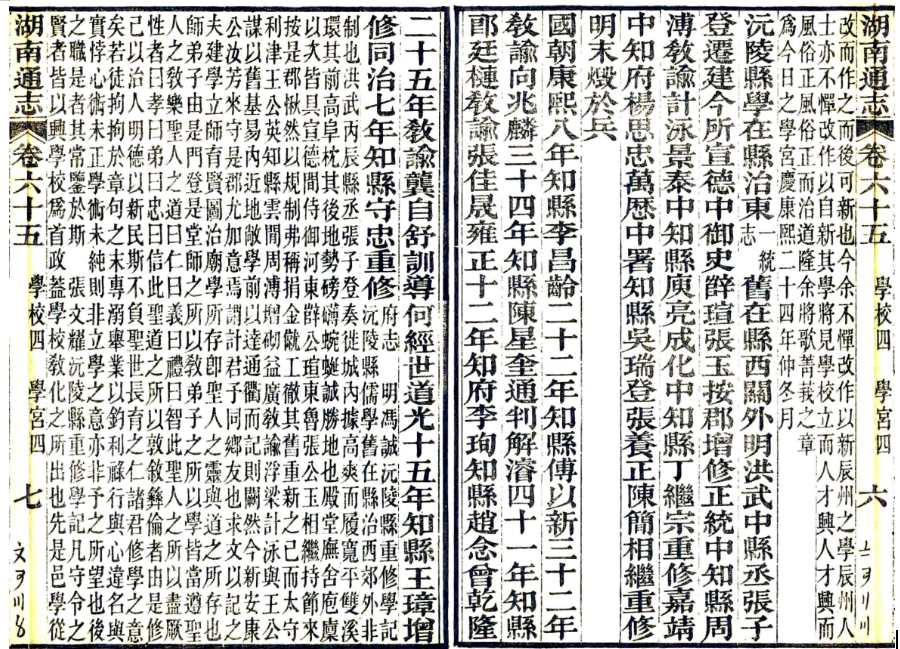 湖南通志 卷六十五 學校四 學宮四 六
改而作之而後可新也今余不憚改作以新辰州之學辰州人
士亦不憚改作以自新其學將見學校立而人才興人才興而
風俗正風俗正而治隆余將歌菁莪之章
爲今日之學宮慶康熙二十四年仲冬月
沅陵縣學在縣治東一統志舊在縣西關外明洪武中縣丞張子
登遷建今所宣德中御史薛瑄張玉按郡增修正統中知縣周
溥教諭計泳景泰中知縣庾亮成化中知縣丁繼宗重修嘉靖
中知府楊思忠萬歷中署知縣吳瑞登張養正陳簡相繼重修
明末燬於兵
國朝康熙八年知縣李昌齡二十二年知縣傅以新三十二年
教諭向兆麟三十四年知縣陳星奎通判解濬四十一年知縣
鄖廷槤教諭張佳晟雍正十二年知府李珣知縣趙念曾乾隆
二十五年教諭龔自舒訓導何經世道光十五年知縣王璋增
修同治七年知縣守忠重修府志 明馮誠沅陵縣重修學記
沅陵縣儒學舊在縣治西郊外非
制也洪武丙辰縣丞張子登奏徙城內據高爽而履寬平雙溪
環其前高阜枕其後地勢磅礴蜿蜒誠勝地也殿堂廡舍庖廩
以次皆具宣德間侍御河東薛公瑄東魯張公玉相繼持節來
按是郡愀然以規制弗稱捐金僦工徹其舊重新之已而太守
利津王公英知縣雲間周溥增砌益廣教諭浮梁計泳與王公
謀以舊基易內近地敞學前以達通衢而記則闕然今新安康
公汝芳來守是郡尤加意焉謂計君子同鄉友也求文以記之
夫建學立師育賢圖治廟學所存卽聖人之靈與道之所存也
師弟子由是門登是堂師之所以教弟子之所以學皆當遵聖
人之教樂聖人之道曰仁曰義曰禮曰智此聖人之所以盡厥
性者曰孝曰弟曰忠曰信此聖道之所以敦敘彝倫者由是修
己以治人明德以新民斯不負聖世長育之仁諸君修學之意
矣若徒拘拘於章句之末專溺舉業以釣利祿行與心違名與
實悖心術未正學術未純則非立學之意亦非予之所望也後
之職是者其常鑒於斯 張文耀沅陵縣重修學記凡守令之
賢者皆以興學校爲首政蓋學校教化之所出也先是邑學從
湖南通志 卷六十五 學校四 學宮四 七